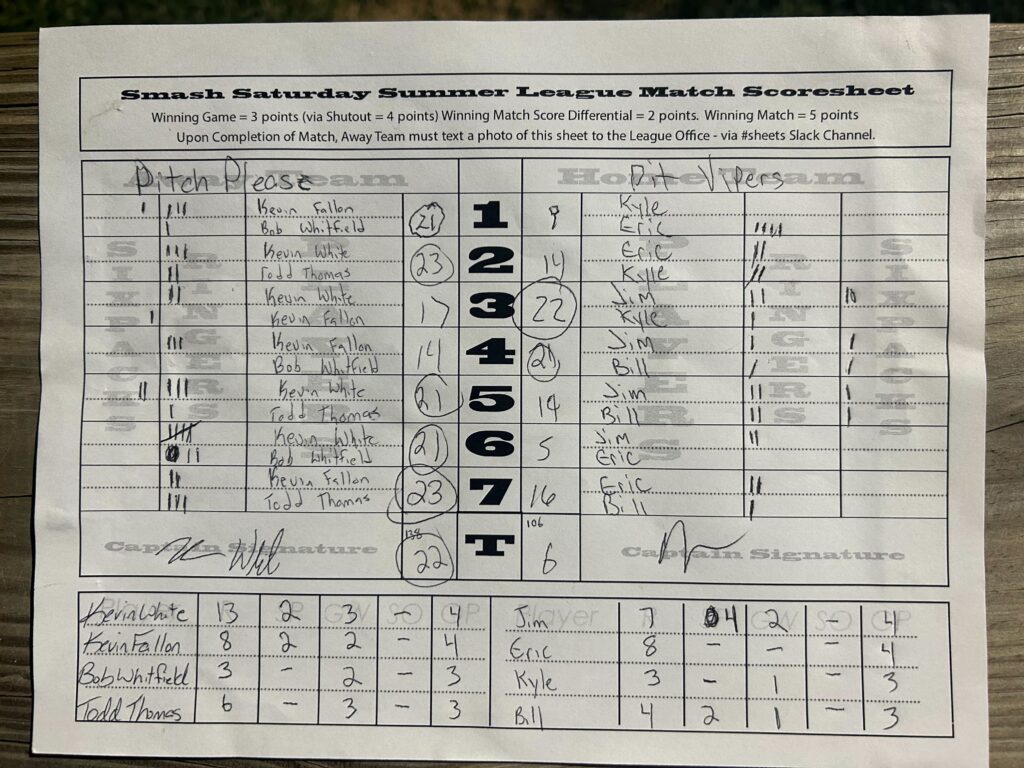 Smash Saturday Summer League Match Scoresheet
Winning Game = 3 points (via Shutout = 4 points) Winning Match Score Differential = 2 points. Winning Match = 5 points
Upon Completion of Match, Away Team must text a photo of this sheet to the League Office - via #sheets Slack Channel.
Pitch Please Home Team Pit Vipers
SIXPACKS RINGERS PLAYERS RINGERS SIXPACKS
Kevin Fallon 21 1 9 Kyle
Bob Whitfield Eric
Kevin White 23 2 14 Eric
Todd Thomas Kyle
Kevin White 17 3 22 Jim
Kevin Fallon Kyle
Kevin Fallon 14 4 21 Jim
Bob Whitfield Bill
Kevin White 21 5 14 Jim
Todd Thomas Bill
Kevin White 21 6 5 Jim
Bob Whitfield Eric
Kevin Fallon 23 7 16 Eric
Todd Thomas Bill
138 106
Captain Signature 22 T 6 Captain Signature
Player R SP GW SO GP Player R SP GW SO GP
Kevin White 13 2 3 - 4 Jim 7 4 2 - 4
Kevin Fallon 8 2 2 - 4 Eric 8 - - - 4
Bob Whitfield 3 - 2 - 3 Kyle 3 - 1 - 3
Todd Thomas 6 - 3 - 3 Bill 4 2 1 - 3